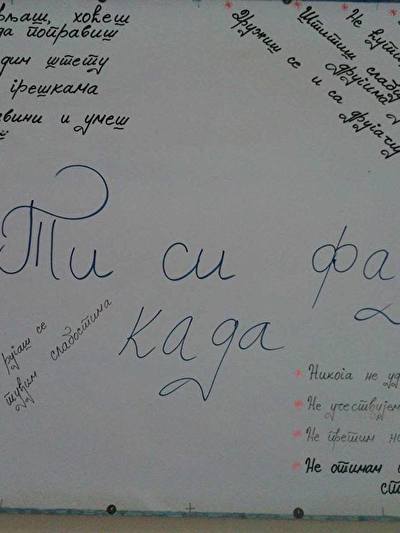 вљаш, хоћеш
да поправиш
штету
грешкама
вини и умеш
* Не ћути
* Штитиш слаби
другима
* Дружиш се и са другачи
Ти си фа
када
ругаш се
туђим слабостима
* Никога не уд
* Не учествујем
* Не претим на
* Не отимам
ст